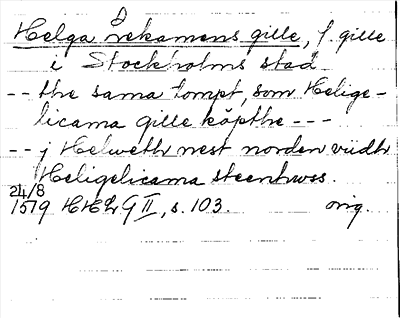 Helga Lekamens gille, f. gille
i Stockholms stad
-- the sama tompt, som Helige-
licama gille köpthe ---
-- j Helweth nest norden widh
Heligelicama steenhwss.
24/8
1519 HHLG II, s. 103. orig.